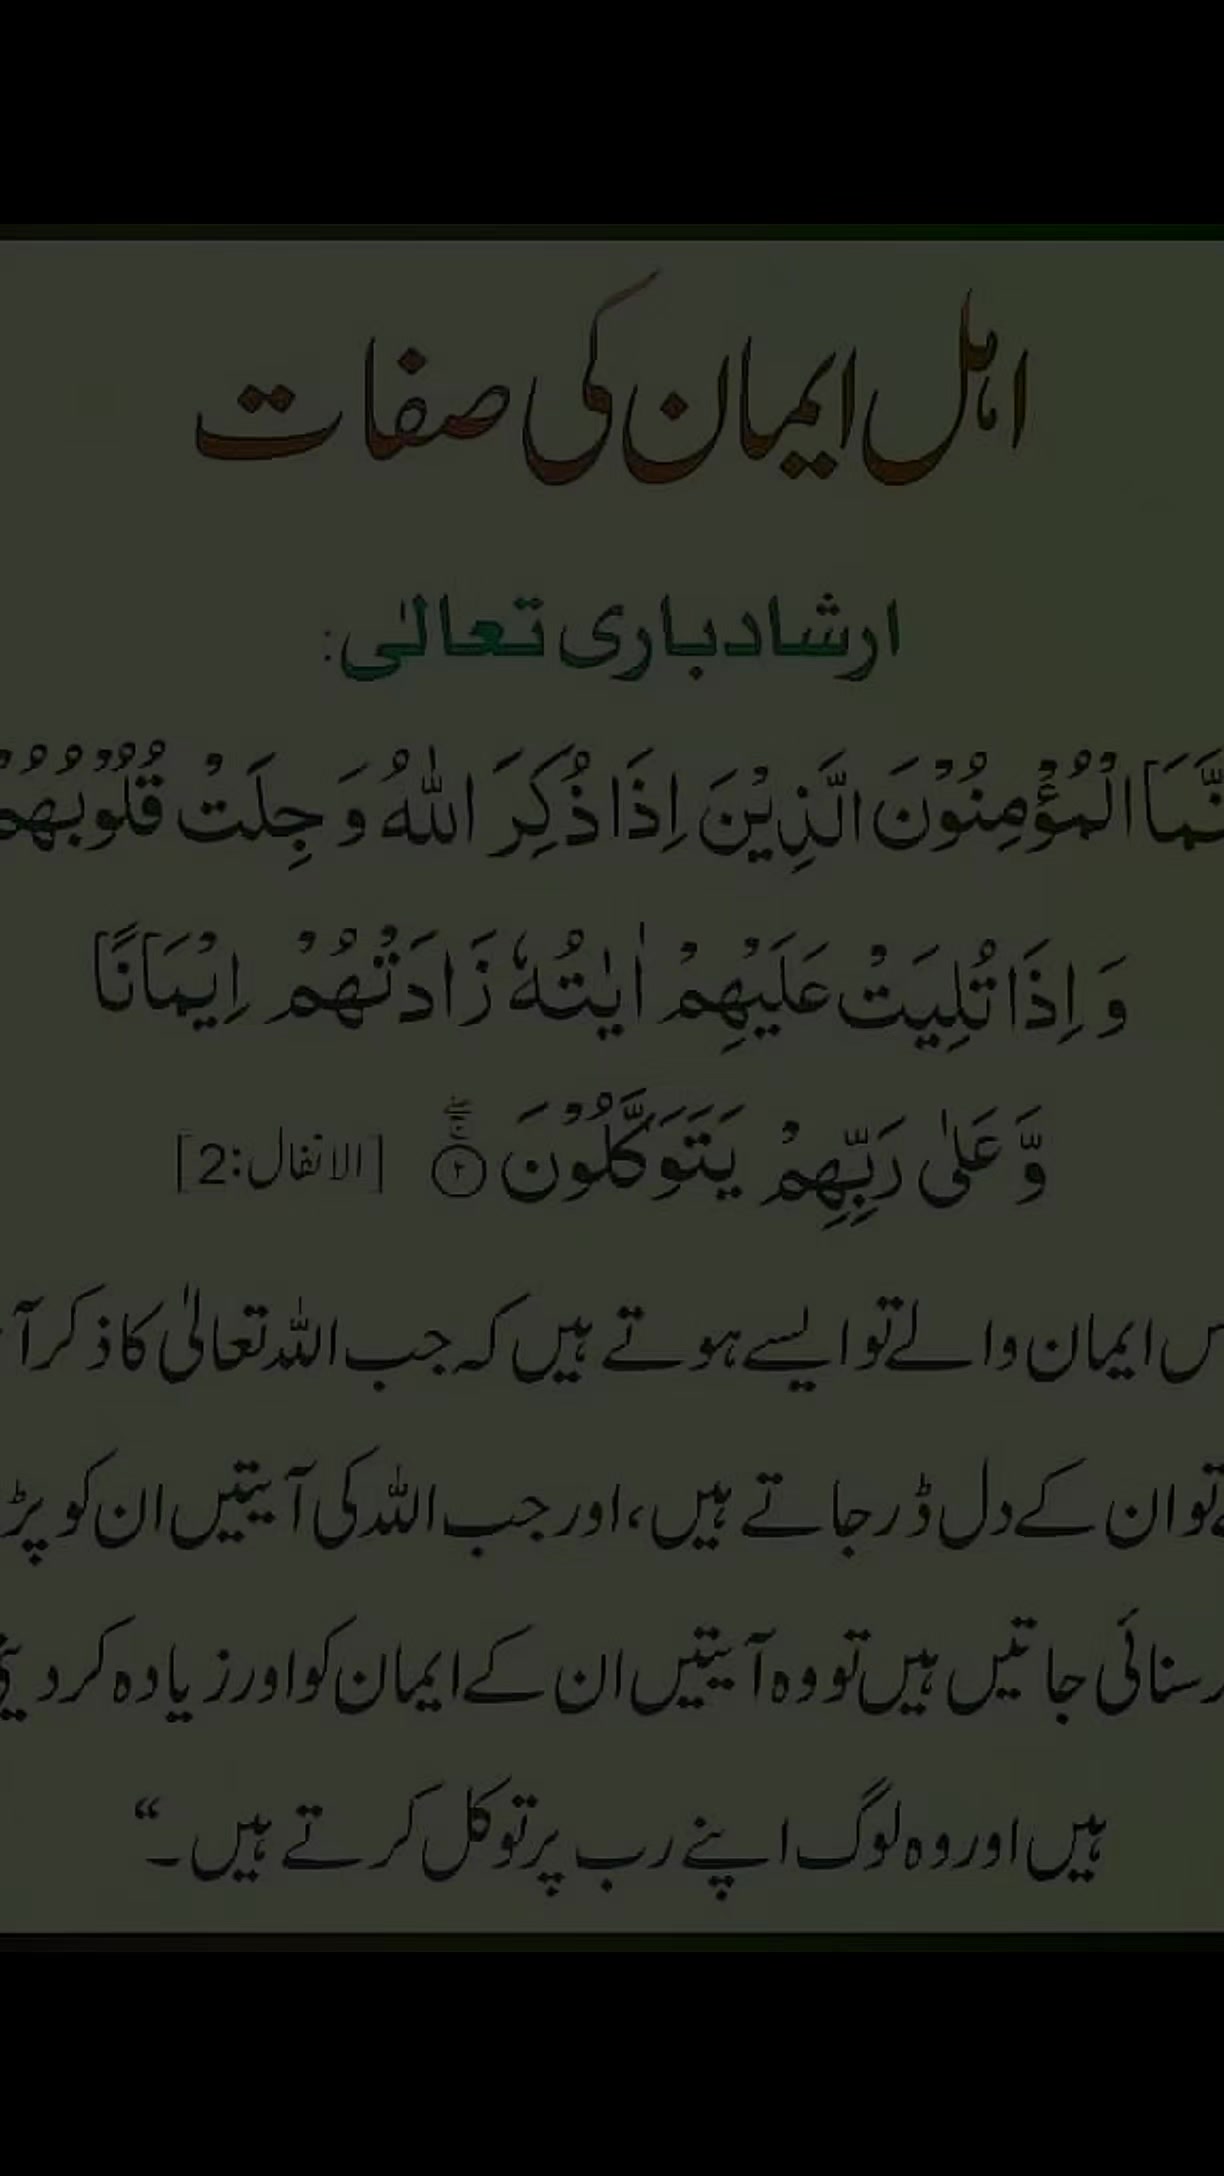 اہل ایمان کی صفات
ارشاد باری تعالیٰ:
نَّمَا الْمُؤْمِنُوْنَ الَّذِیْنَ اِذَا ذُكِرَ اللّٰهُ وَ جِلَتْ قُلُوْبُهُمْ
وَ اِذَا تُلِیَتْ عَلَیْهِمْ اٰیٰتُهٗ زَادَتْهُمْ اِیْمَانًا
وَّ عَلٰی رَبِّهِمْ یَتَوَكَّلُوْنَ ۝۲ [الانفال:2]
س ایمان والے تو ایسے ہوتے ہیں کہ جب اللہ تعالیٰ کا ذکر آ
تو ان کے دل ڈر جاتے ہیں، اور جب اللہ کی آیتیں ان کو پڑ
ر سنائی جاتیں ہیں تو وہ آیتیں ان کے ایمان کو اور زیادہ کر دیتی
ہیں اور وہ لوگ اپنے رب پر توکل کرتے ہیں۔“